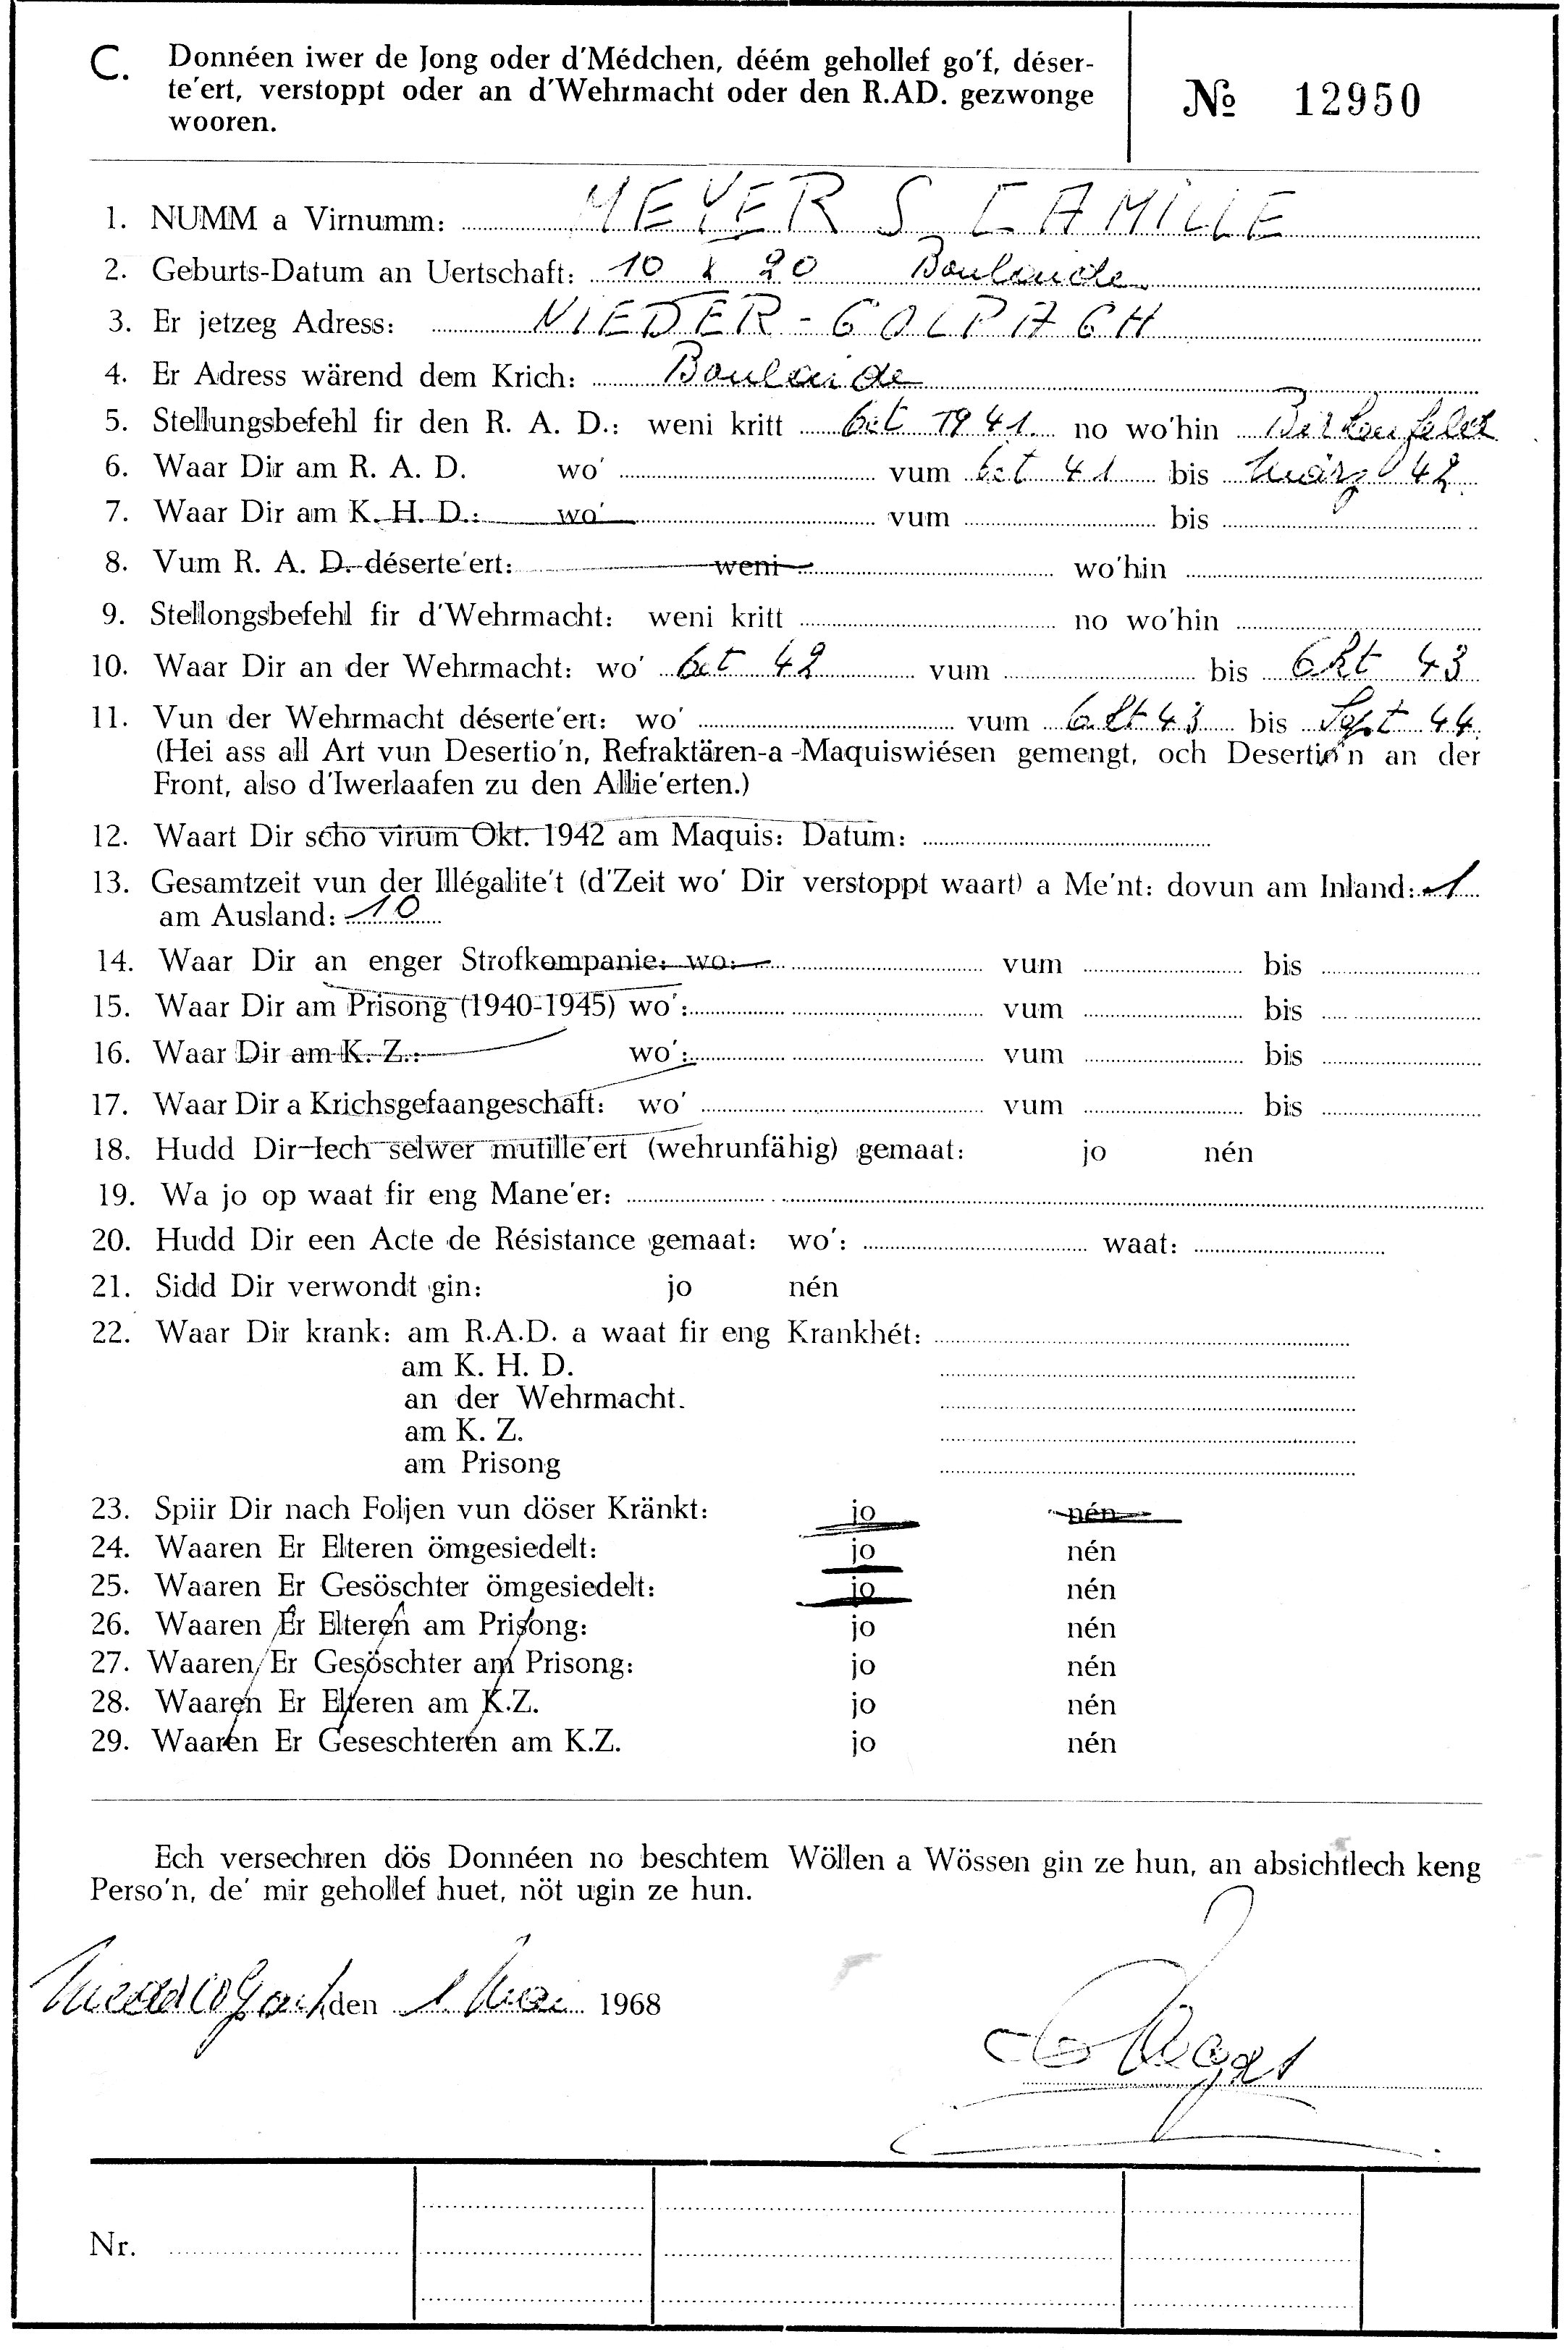 C. Donnéen iwer de Jong oder d'Médchen, déém gehollef go'f, déser-
te'ert, verstoppt oder an d'Wehrmacht oder den R.AD. gezwonge
wooren.
№ 12950
1. NUMM a Virnumm: MEYERS CAMILLE
2. Geburts-Datum an Uertschaft: 10 X 20 Boulaide
3. Er jetzeg Adress: NIEDER-COLPACH
4. Er Adress wärend dem Krich: Boulaide
5. Stellungsbefehl fir den R. A. D.: weni kritt Oct 1941 no wo'hin Birkenfeld
6. Waar Dir am R. A. D. wo' vum Oct 41 bis März 42
7. Waar Dir am K. H. D.: wo' vum bis
8. Vum R. A. D. déserte'ert: weni wo'hin
9. Stellongsbefehl fir d'Wehrmacht: weni kritt no wo'hin
10. Waar Dir an der Wehrmacht: wo' Oct 42 vum bis Okt 43
11. Vun der Wehrmacht déserte'ert: wo' vum Okt 43 bis Sept 44
(Hei ass all Art vun Desertio'n, Refraktären-a -Maquiswiésen gemengt, och Desertio'n an der
Front, also d'Iwerlaafen zu den Allie'erten.)
12. Waart Dir scho virum Okt. 1942 am Maquis: Datum:
13. Gesamtzeit vun der Illégalite't (d'Zeit wo' Dir verstoppt waart) a Me'nt: dovun am Inland: 1
am Ausland: 10
14. Waar Dir an enger Strofkompanie: wo: vum bis
15. Waar Dir am Prisong (1940-1945) wo': vum bis
16. Waar Dir am K. Z.: wo': vum bis
17. Waar Dir a Krichsgefaangeschaft: wo' vum bis
18. Hudd Dir Iech selwer mutille'ert (wehrunfähig) gemaat: jo nén
19. Wa jo op waat fir eng Mane'er:
20. Hudd Dir een Acte de Résistance gemaat: wo': waat:
21. Sidd Dir verwondt gin: jo nén
22. Waar Dir krank: am R.A.D. a waat fir eng Krankhét:
am K. H. D.
an der Wehrmacht.
am K. Z.
am Prisong
23. Spiir Dir nach Foljen vun döser Kränkt: jo nén
24. Waaren Er Elteren ömgesiedelt: jo nén
25. Waaren Er Gesöschter ömgesiedelt: jo nén
26. Waaren Er Elteren am Prisong: jo nén
27. Waaren Er Gesöschter am Prisong: jo nén
28. Waaren Er Elteren am K.Z. jo nén
29. Waaren Er Geseschteren am K.Z. jo nén
Ech versechren dös Donnéen no beschtem Wöllen a Wössen gin ze hun, an absichtlech keng
Perso'n, de' mir gehollef huet, nöt ugin ze hun.
den 1 Mai 1968
Nr.